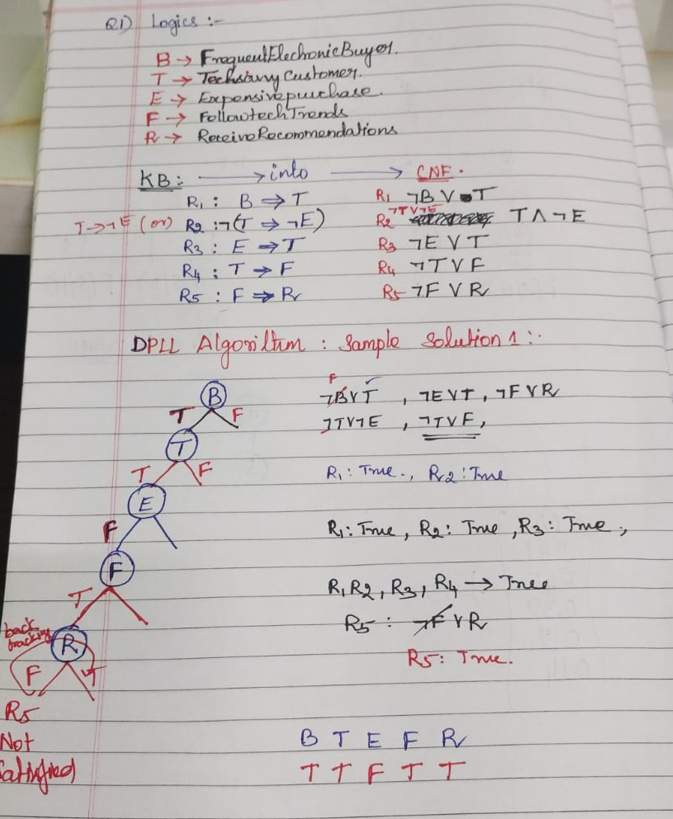 Q1) Logics :-
B → FrequentElectronicBuyer.
T → Techsavvy Customer.
E → Expensivepurchase.
F → FollowtechTrends
R → ReceiveRecommendations
KB: → into → CNF.
R1 : B ⇒ T R1 ¬B V T
T → ¬E (or) R2 : ¬(T ⇒ ¬E) R2 ¬TV¬E T ∧ ¬E
R3 : E ⇒ T R3 ¬E V T
R4 : T → F R4 ¬T V F
R5 : F ⇒ R R5 ¬F V R
DPLL Algorithm : Sample Solution 1 :-
B F ¬BVT , ¬EVT , ¬FVR
T F ¬TV¬E , ¬TVF ,
T
T F R1 : True , R2 : True
E
F R1 : True , R2 : True , R3 : True ,
F
T R1, R2, R3, R4 → True
back tracking R R5 : ¬F V R
F T R5 : True.
R5
Not B T E F R
Satisfied T T F T T